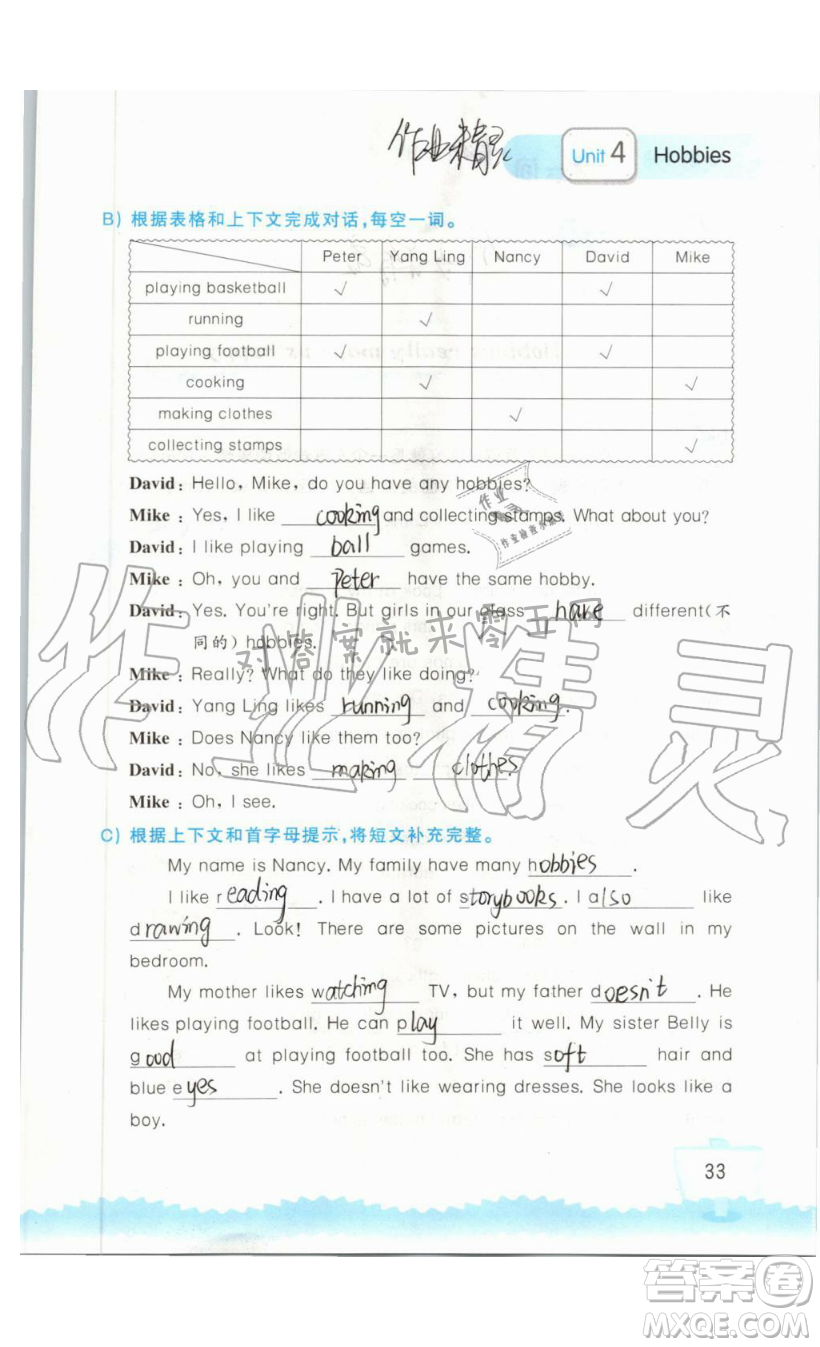 作业精灵
Unit 4 Hobbies
B) 根据表格和上下文完成对话,每空一词。
Peter Yang Ling Nancy David Mike
playing basketball ✓ ✓
running ✓
playing football ✓ ✓
cooking ✓ ✓
making clothes ✓
collecting stamps ✓
David: Hello, Mike, do you have any hobbies?
Mike: Yes, I like cooking and collecting stamps. What about you?
David: I like playing ball games.
Mike: Oh, you and Peter have the same hobby.
David: Yes. You're right. But girls in our class have different(不
同的) hobbies.
Mike: Really? What do they like doing?
David: Yang Ling likes running and cooking.
Mike: Does Nancy like them too?
David: No, she likes making clothes.
Mike: Oh, I see.
C) 根据上下文和首字母提示,将短文补充完整。
My name is Nancy. My family have many hobbies.
I like reading. I have a lot of storybooks. I also like
drawing. Look! There are some pictures on the wall in my
bedroom.
My mother likes watching TV, but my father doesn't. He
likes playing football. He can play it well. My sister Belly is
good at playing football too. She has soft hair and
blue eyes. She doesn't like wearing dresses. She looks like a
boy.
33
作业
作业检查小助手
对答案就来零五网
作业精灵
答案圈
MXQE.COM